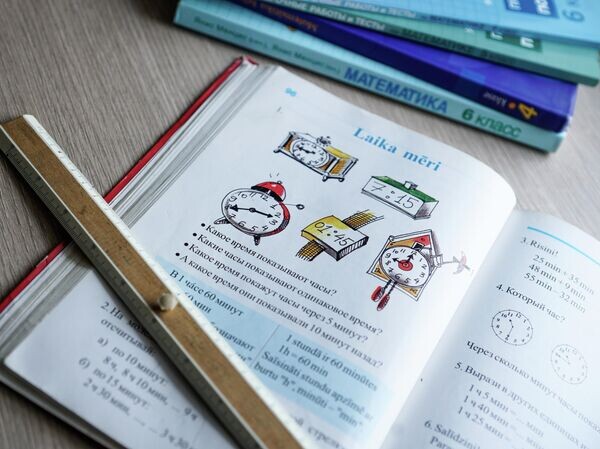 МАТЕМАТИКА
6 класс
klase
4
96
Laika mēri
7:15
01:15
• Какое время показывают часы?
• Какие часы показывают одинаковое время?
• Какое время покажут часы через 5 минут?
• А какое время они показывали 10 минут назад?
В 1 часе 60 минут
1 stundā ir 60 minūtes
1h – 60 min
Saīsināti stundu apzīmē ar
burtu "h", minūti – "min"
отсчитывай
а) по 10 минут:
8 ч, 8 ч 10 мин, ... 9 ч
б) по 15 минут:
2 ч 30 мин, ... 3 ч 30
3. Risini!
25 min + 35 min
48 min + 9 min
55 min – 32 min
4. Который час?
Через сколько минут часы
5. Вырази в других единицах
1 ч 5 мин = ... мин
1 ч 40 мин = ... мин
1 ч 25 мин = ... мин
6. Salīdzini